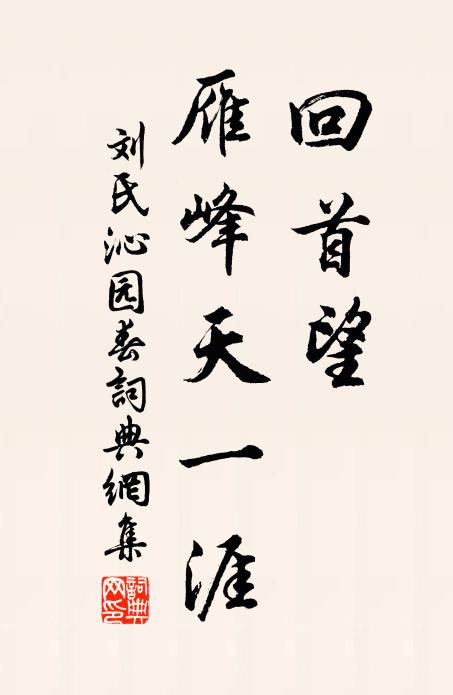 回首望
雁峰天一涯
刘氏沁园春詞典網集
詞典
网印